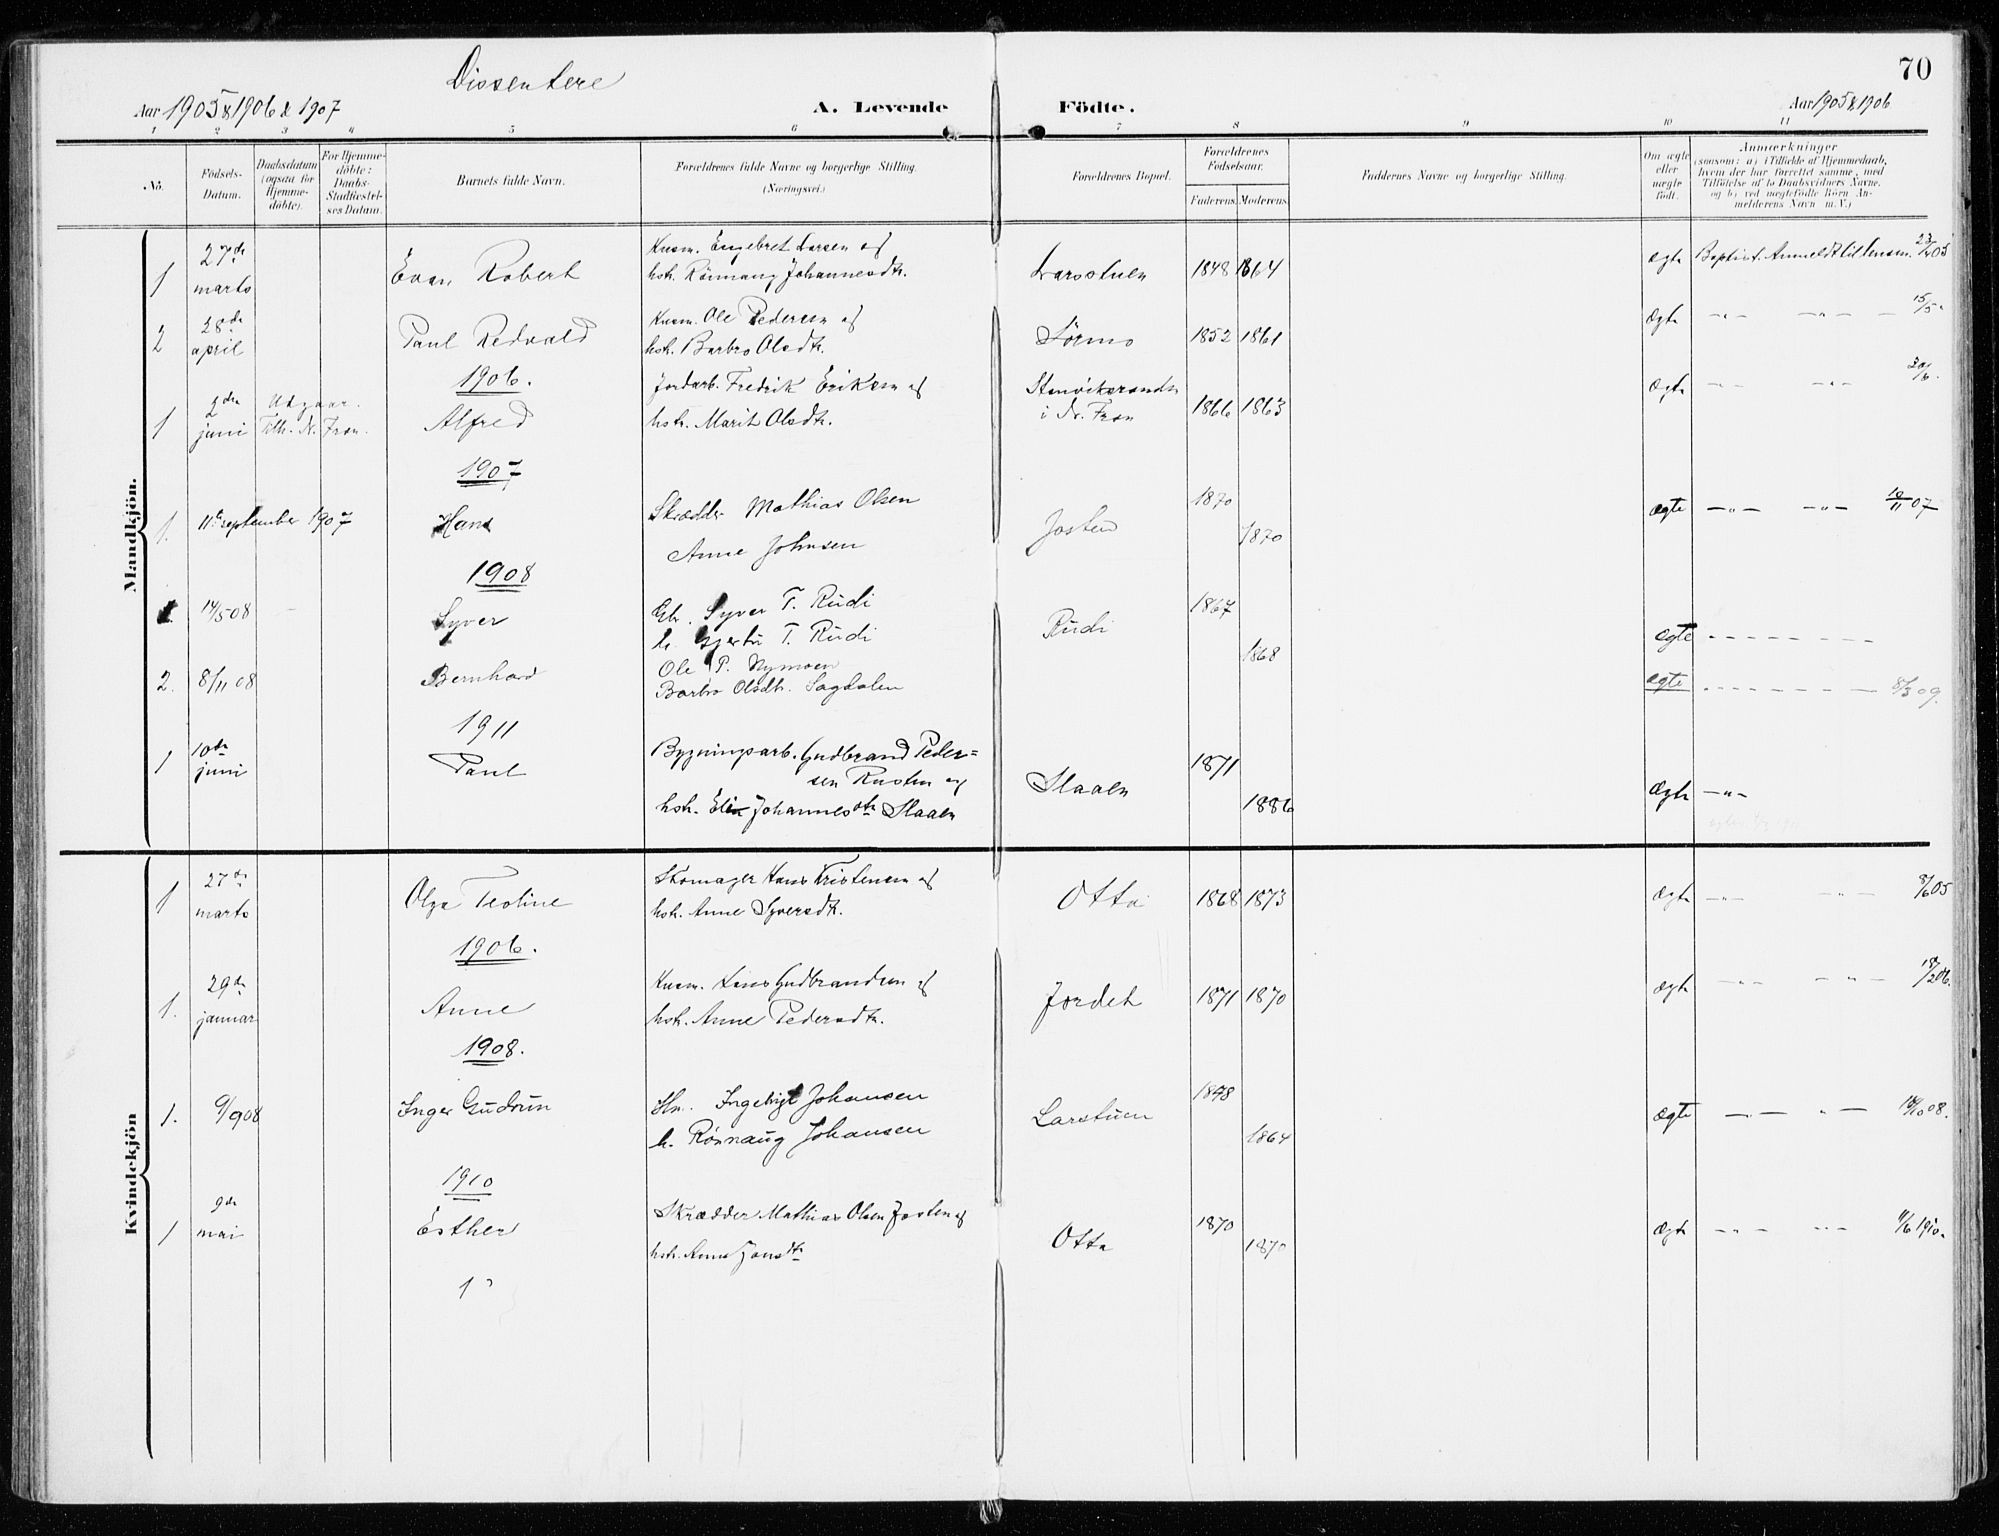 70
Dissentere
Aar 1905 & 1906 & 1907
A. Levende Födte.
Aar 1905 & 1906
1 2 3 4 5 6 7 8 9 10 11
No.
Födsels-
Datum.
Daabsdatum
(ogsaa for
Hjemme-
döbte).
For Hjemme-
döbte:
Daabs-
Stadfæstel-
ses Datum.
Barnets fulde Navn.
Forældrenes fulde Navne og borgerlige Stilling.
(Næringsvei.)
Forældrenes Bopæl.
Forældrenes
Födselsaar.
Faderens. Moderens.
Faddernes Navne og borgerlige Stilling.
Om ægte
eller
uægte
født.
Anmærkninger
(saasom: a) i Tilfælde af Hjemmedaab,
hvem der har forrettet samme, med
Tilföielse af to Daabsvidners Navne.
og b) ved uægtefödte Börn An-
melderens Navn m. V.)
Mandkjön.
1 27de marts Evan Robert
Husm. Engebret Larsen og
hstr. Rönnaug Johannesdtr.
Larsstuen 1848 1864 ægte Baptist. Anmeldt til 23/4 05
2 28de april Paul Redvald
Husm. Ole Pedersen og
hstr. Barbro Olsdtr.
Sörmo 1852 1861 Ægte -"- -"- 15/5
1906.
1 2den juni Udgaar. Tilh. N. Fron. Alfred
Jordarb. Fredrik Eriksen og
hstr. Marit Olsdtr.
i N. Fron 1866 1863 Ægte -"- -"-
1907
1. 11te september 1907 Hans
Skrædder Mathias Olsen
Anne Johnsen
Josten 1870 1870 Ægte -"- -"- 10/11 07
1908
14/5 08 Syver
Gbr. Syver T. Rudi
h. Gjertru T. Rudi
Rudi 1867 1868 Ægte
2. 8/11 08 Bernhard
Ole P. Nymoen
Barbro Olsdtr. Sagdalen
ægte 8/3 09.
1911
1 10de juni Paul
Bygningsarb. Gudbrand Peder=
sen Rusten og
hstr. Eli Johannesdtr Slaaen
Slaaen 1871 1886 Ægte -"-
Kvindekjön
1 27de marts Olga Teoline
Skomager Hans Kristensen og
hstr. Anne Syversdtr.
Otta 1868 1873 Ægte -"- -"- 8/6 05
1906.
1. 29de januar Anne
Husm. Hans Gudbrandsen og
hstr. Anne Pedersdtr.
Jordet 1871 1870 Ægte -"- -"- 18/2 06.
1908.
1. 9/9 08 Inger Gudrun
Hm. Ingebrigt Johansen
h. Rönnaug Johansen
Larstuen 1848 1864 Ægte -"- 14/10 08.
1910
1 9de mai Esther
Skrædder Mathias Olsen Josten og
hstr. Anne Jonsdtr
Otta 1870 1870 Ægte -"- -"- 11/6 1910.